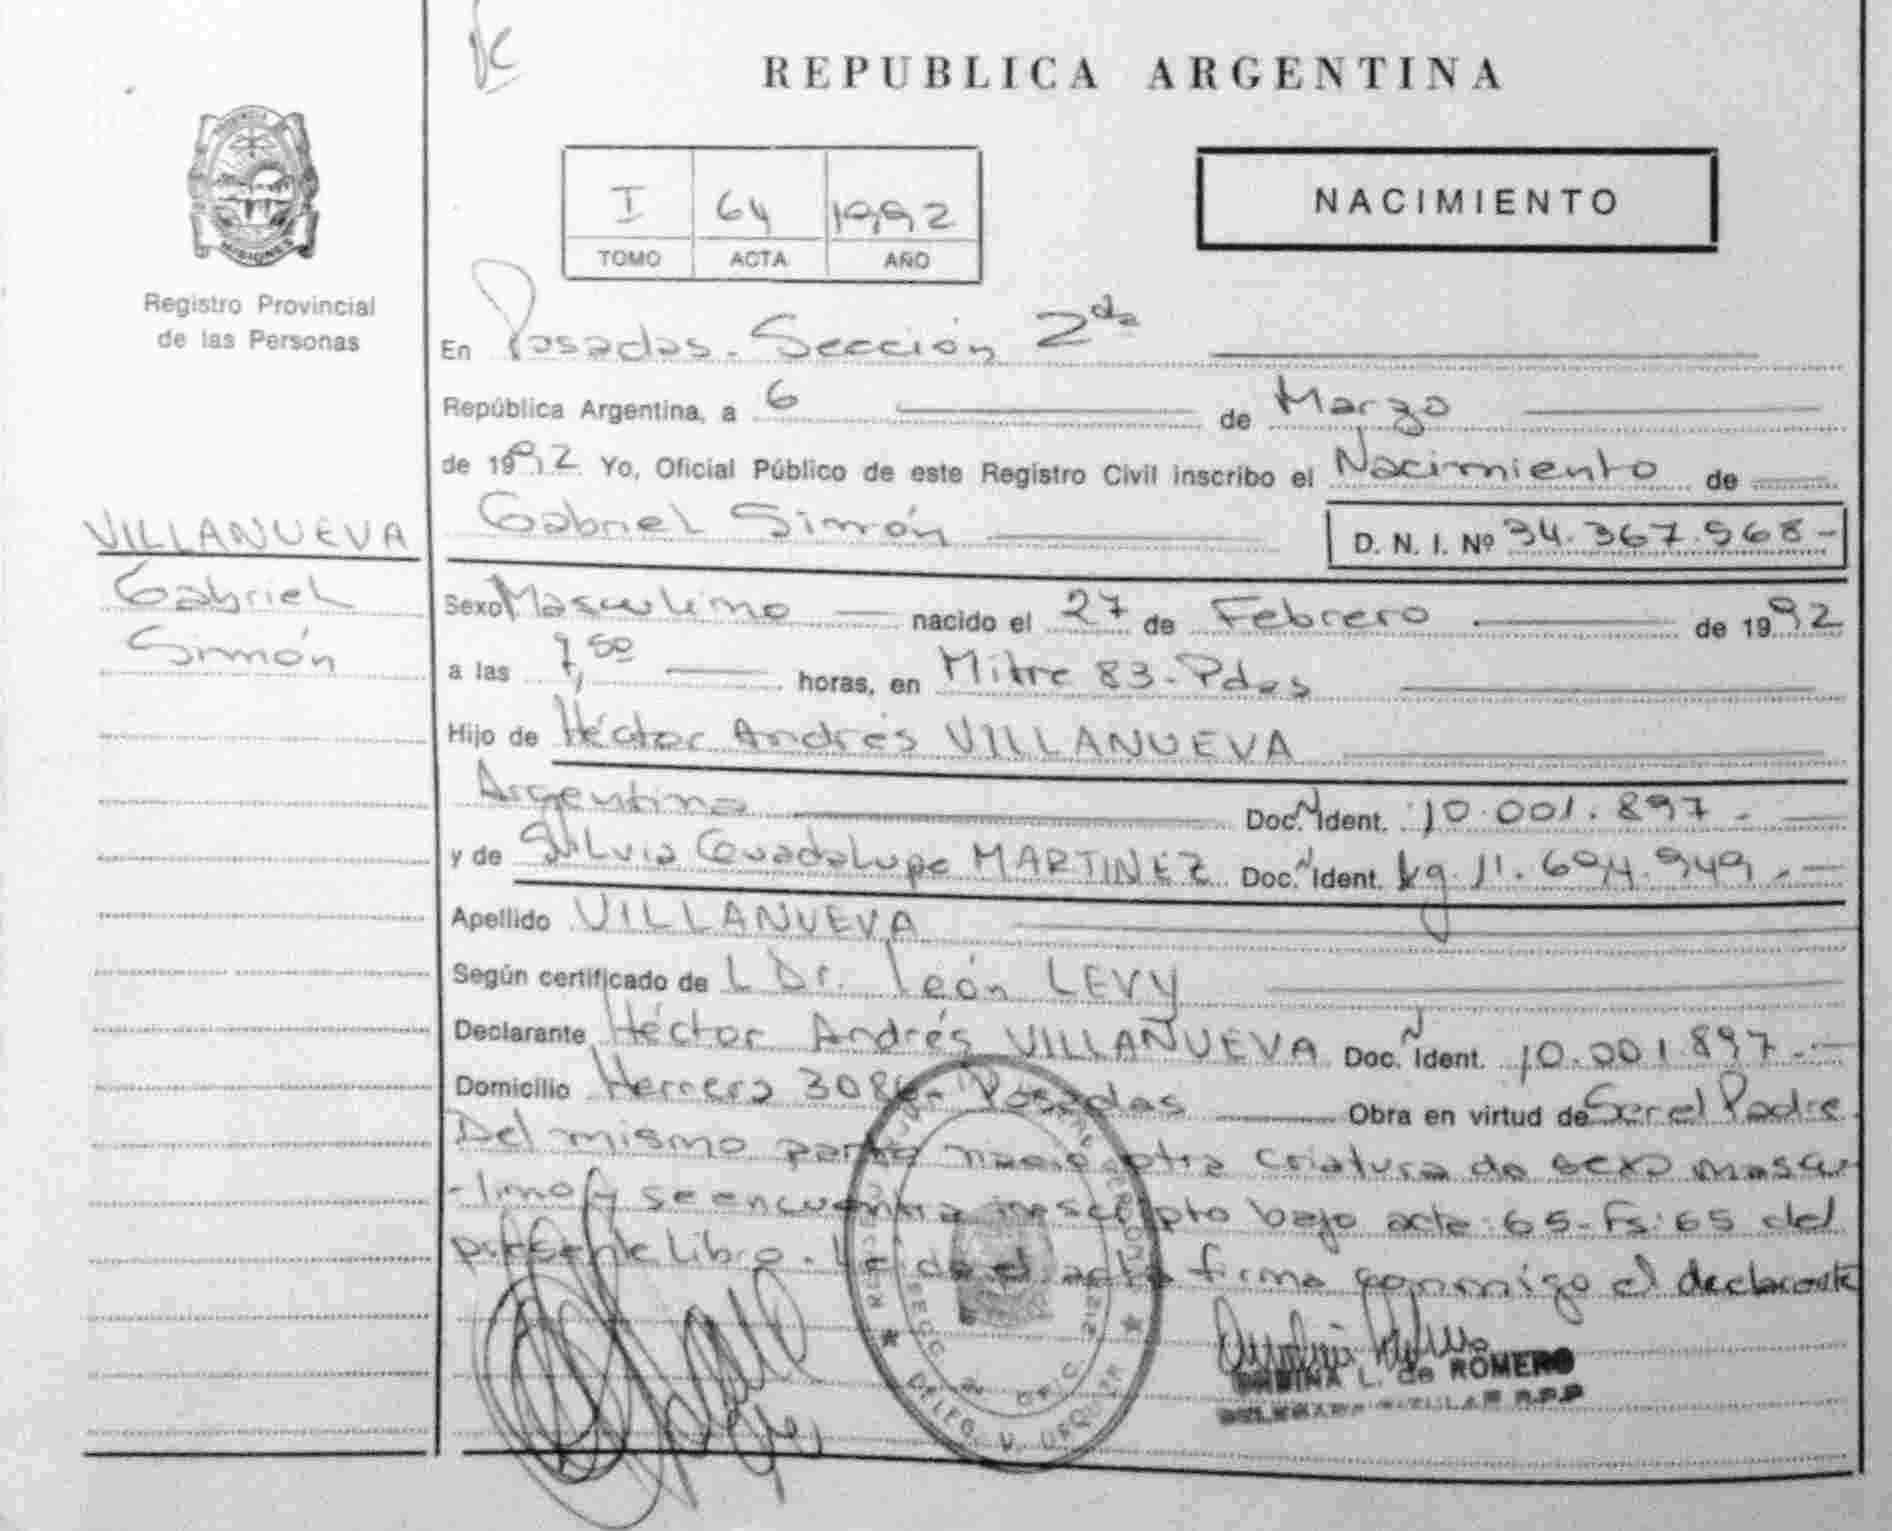 REPUBLICA ARGENTINA
MISIONES
Registro Provincial
de las Personas
I 64 1992
TOMO ACTA AÑO
NACIMIENTO
En Posadas. Sección 2da
República Argentina, a 6 de Marzo
de 1992 Yo, Oficial Público de este Registro Civil inscribo el Nacimiento de
Gabriel Simón D. N. I. Nº 34.367.568-
VILLANUEVA
Gabriel
Simón
Sexo Masculino nacido el 27 de Febrero de 1992
a las 7,50 horas, en Mitre 83-Pdas
Hijo de Héctor Andrés VILLANUEVA
Argentino Doc. Ident. 10.001.897-
y de Silvia Guadalupe MARTINEZ Doc. Ident. 11.694.949.-
Apellido VILLANUEVA
Según certificado de L Dr. León LEVY
Declarante Héctor Andrés VILLANUEVA Doc. Ident. 10.001.897.-
Domicilio Herrera 3086- Posadas Obra en virtud de Ser el Padre
Del mismo parto nacio otra criatura de sexo mascu-
-lino y se encuentra inscripto bajo acta: 65-Fs: 65 del
presente Libro. Leida el acta firma conmigo el declarante
L. de ROMERO
R.P.P
SECC. 2
DELEG. V. URQUIZA